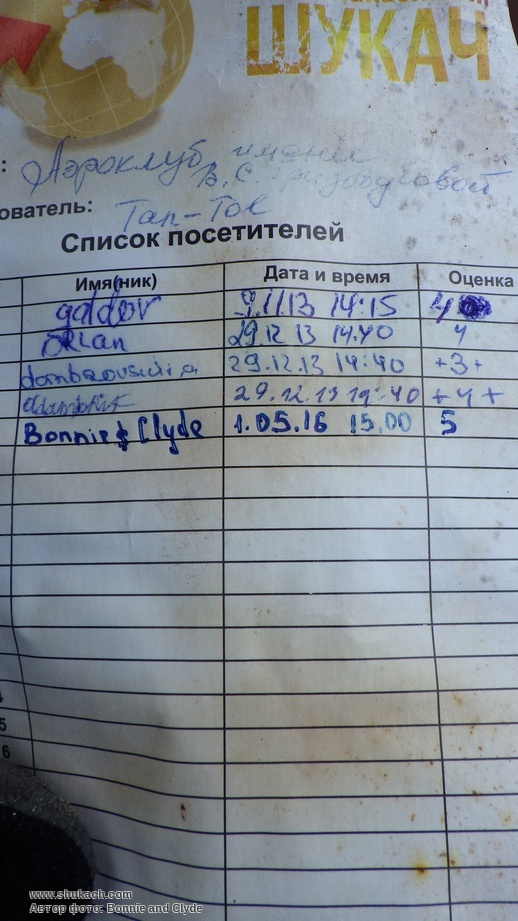 ШУКАЧ
: Аэроклуб имени
В.С. Гризодубовой
ователь: Тап-Тов
Список посетителей
Имя(ник) Дата и время Оценка
galdov 9.11.13 14:15 4
ORLan 29 12 13 14.40 4
29.12.13 14:40 +3+
29.12.13 14:40 +4+
Bonnie & Clyde 1.05.16 15.00 5
5
6
www.shukach.com
Автор фото: Bonnie and Clyde